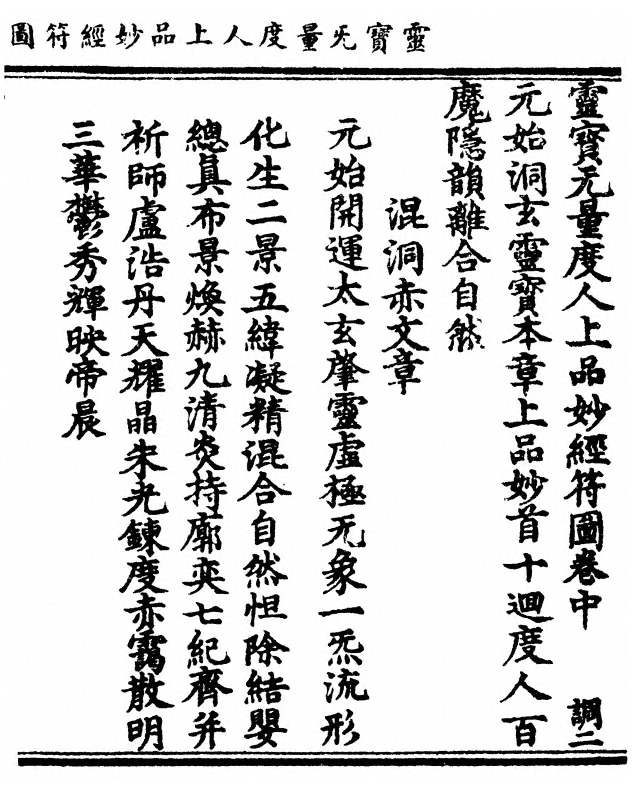 靈寶无量度人上品妙經符圖
靈寶无量度人上品妙經符圖卷中 調二
元始洞玄靈寶本章上品妙首十迴度人百
魔隱韻離合自然
混洞赤文章
元始開運太玄肇靈虛極无象一炁流形
化生二景五緯凝精混合自然怛除結嬰
總真布景煥赫九清炎持廓奕七紀齊并
祈師盧浩丹天耀晶朱光鍊度赤靄散明
三華鬱秀輝映帝晨